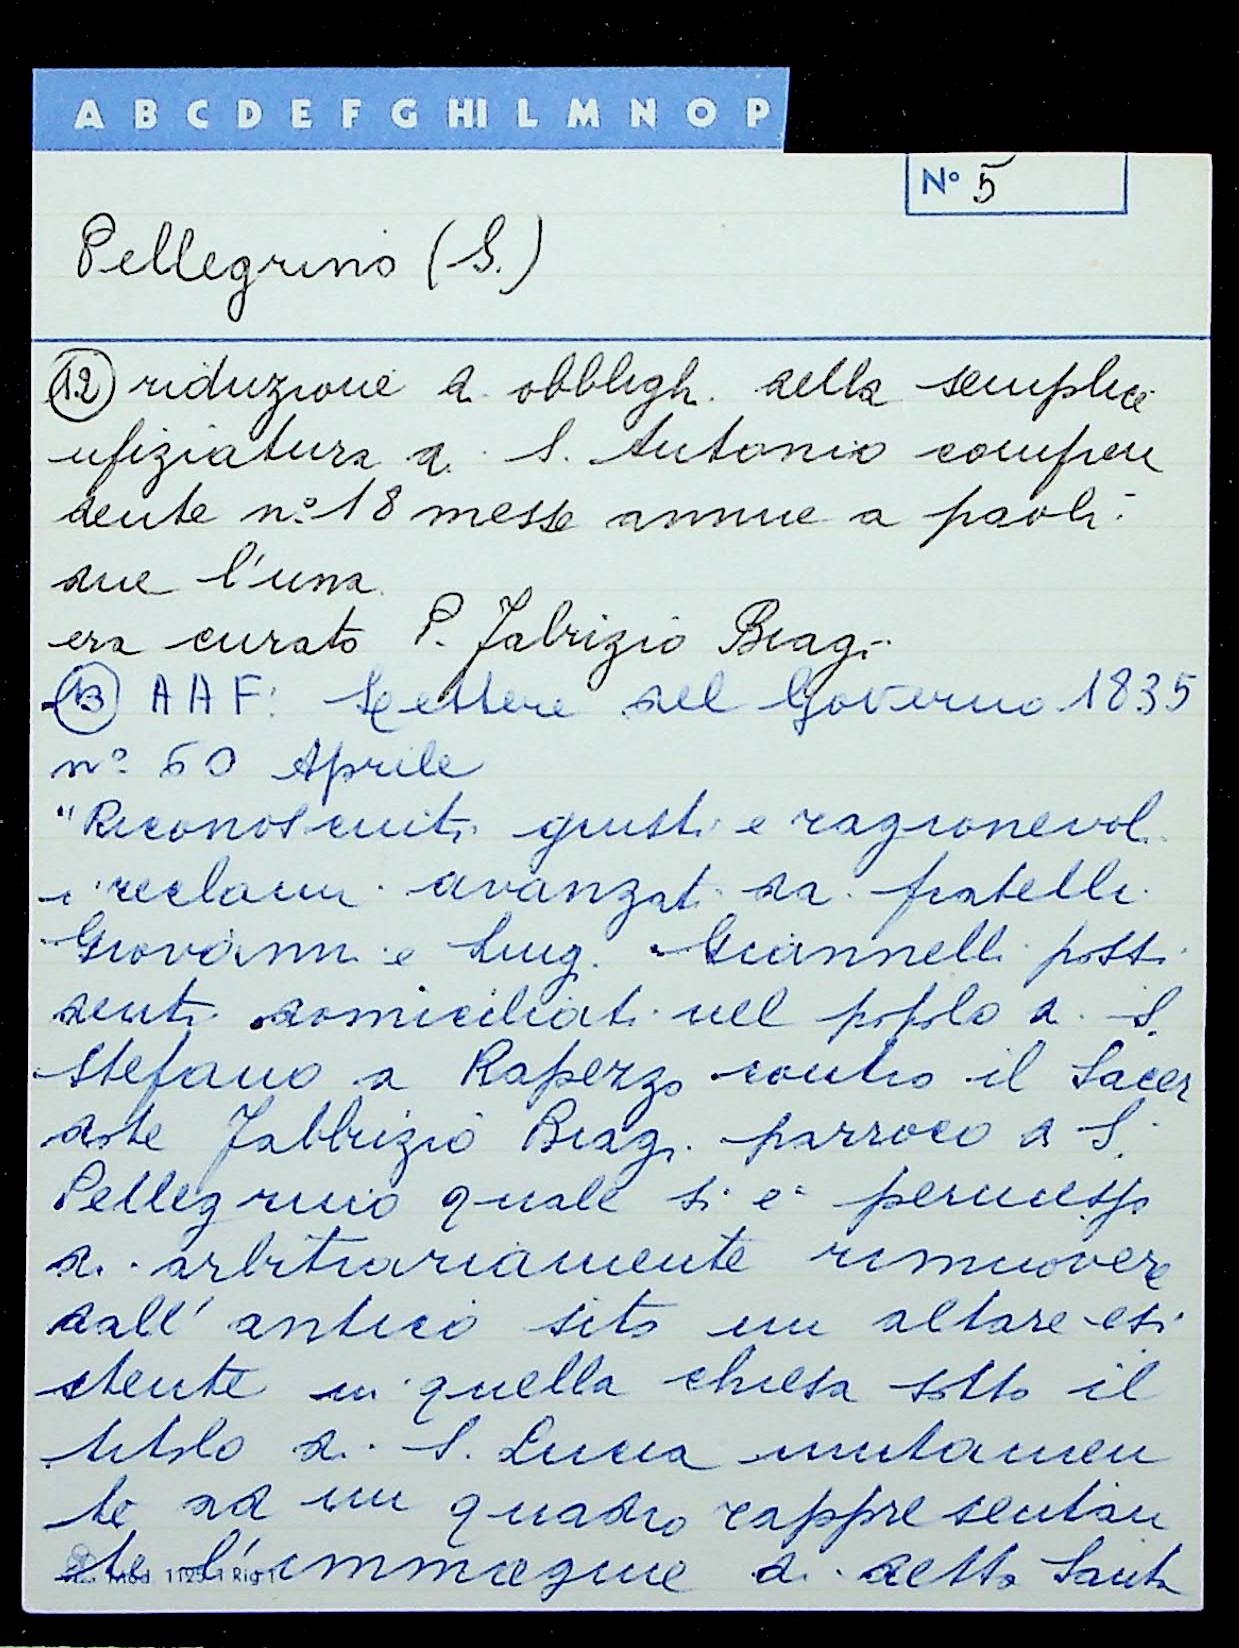 A B C D E F G HI L M N O P
N° 5
Pellegrino (S.)
12 riduzione di obblighi della semplice
ufiziatura di S. Antonio compren
dente n° 18 messe annue a paoli
due l'una
era curato P. Fabrizio Biagi
13 AAF: Lettere del Governo 1835
n° 60 Aprile
"Riconosciuti giusti e ragionevoli
i reclami avanzati da fratelli
Giovanni e Luigi Giannelli possi
denti domiciliati nel popolo di S.
Stefano a Rapezzo contro il Sacer
dote Fabbrizio Biagi parroco a S.
Pellegrino quale si è permesso
di arbitrariamente rimuovere
dall' antico sito un altare esi
stente in quella chiesa sotto il
titolo di S. Lucia unitamen
te ad un quadro rappresentan
te l'immagine di detta Santa
Mod. 1125-1 Rig 1